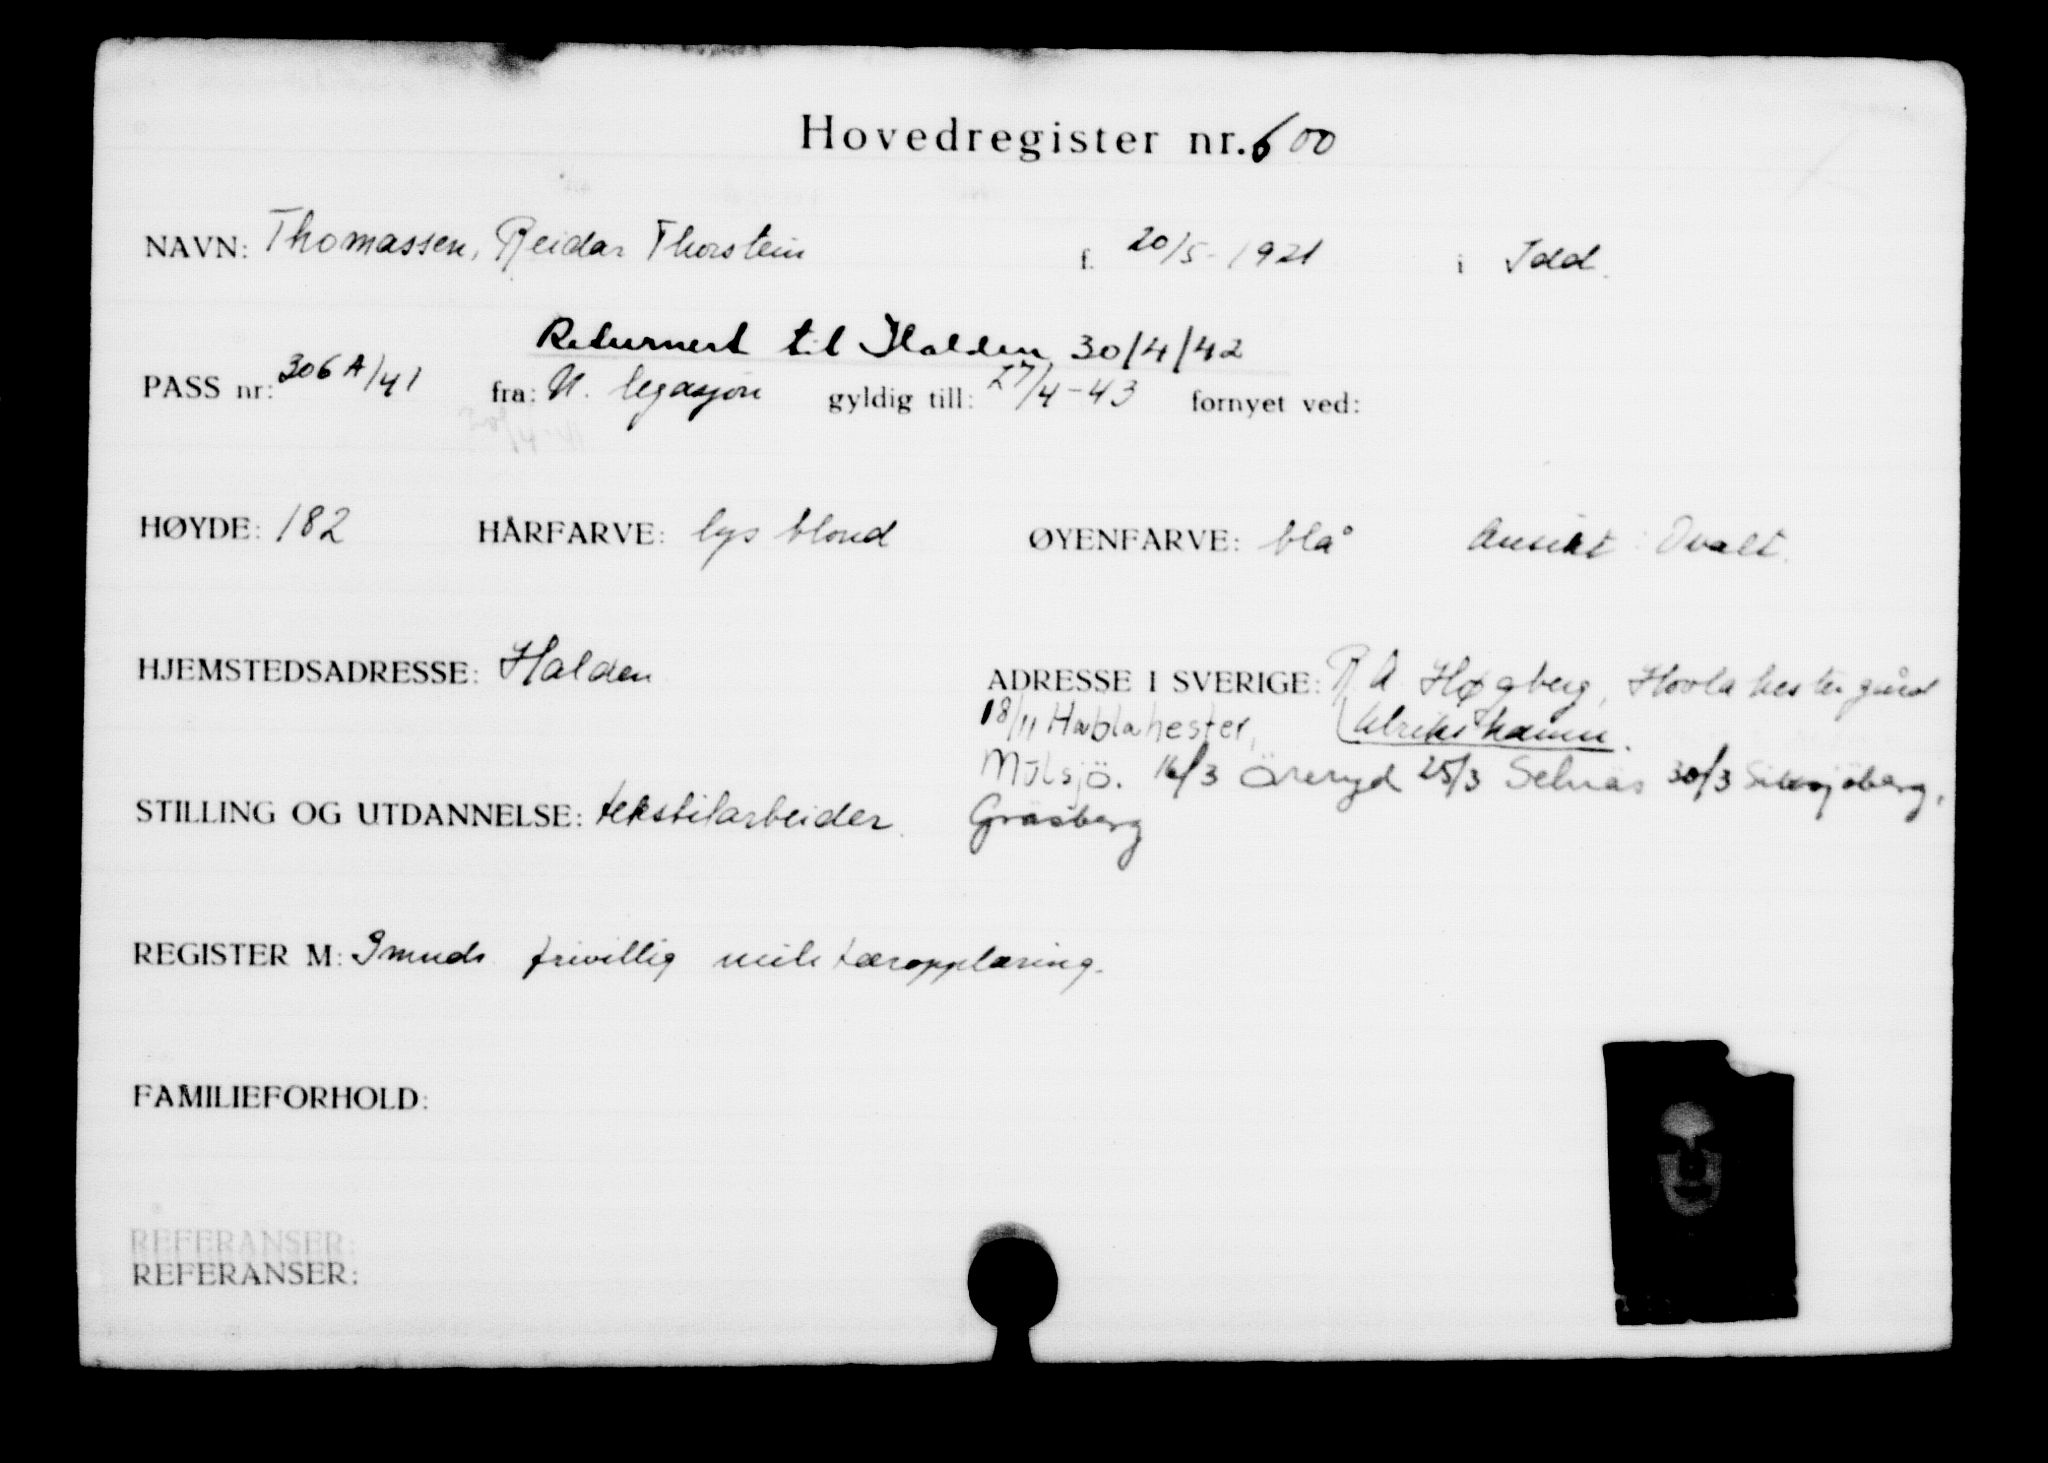 Hovedregister nr. 600
NAVN: Thomassen, Reidar Thorstein f. 20/5-1921 i Idd.
Returnert til Halden 30/4/42
PASS nr: 306 A/41 fra: N. legasjon gyldig till: 27/4-43 fornyet ved:
HØYDE: 182 HÅRFARVE: lys blond ØYENFARVE: blå Ansikt: Ovalt.
HJEMSTEDSADRESSE: Halden ADRESSE I SVERIGE: R A Høgberg, Hovla hester gård
18/11 Habblahester, Ulrikshamn.
Mulsjö. 16/3 Öreryd 25/3 Selnäs 30/3
STILLING OG UTDANNELSE: tekstilarbeider. Gräsberg
REGISTER M: 9 mnds frivillig militæropplæring.
FAMILIEFORHOLD:
REFERANSER:
REFERANSER: